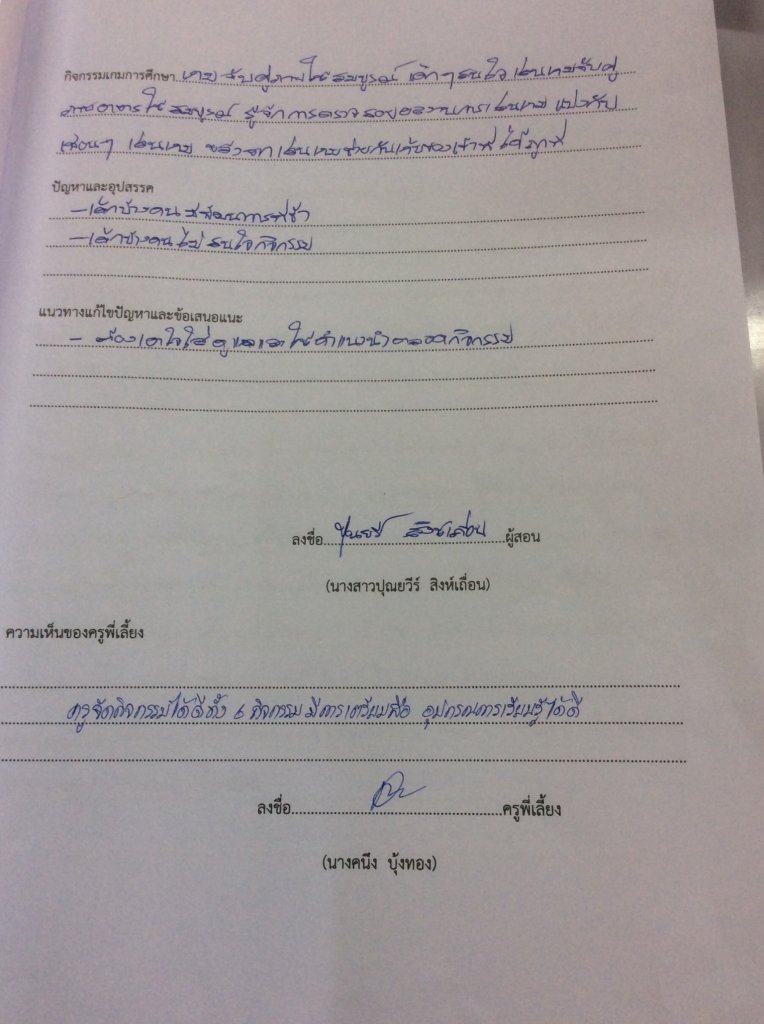 กิจกรรมเกมการศึกษา เกม จับคู่ภาพให้สมบูรณ์ เด็กๆสนใจเล่นเกมจับคู่
ภาพอาหารให้สมบูรณ์ รู้จักการตรวจสอบผลงานการเล่นเกม แบ่งปัน
เพื่อนๆ เล่นเกม หลังจากเล่นเกมช่วยกันเก็บของเข้าที่ได้ถูกที่
ปัญหาและอุปสรรค
- เด็กบางคนมีพัฒนาการที่ช้า
- เด็กบางคนไม่สนใจกิจกรรม
แนวทางแก้ไขปัญหาและข้อเสนอแนะ
- ต้องเอาใจใส่ดูแลและให้คำแนะนำตลอดกิจกรรม
ลงชื่อ ปุณยวีร์ สิงห์เถื่อน ผู้สอน
(นางสาวปุณยวีร์ สิงห์เถื่อน)
ความเห็นของครูพี่เลี้ยง
ครูจัดกิจกรรมได้ดีทั้ง 6 กิจกรรม มีการเตรียมสื่อ อุปกรณ์การเรียนรู้ได้ดี
ลงชื่อ ครูพี่เลี้ยง
(นางคนึง บุ้งทอง)